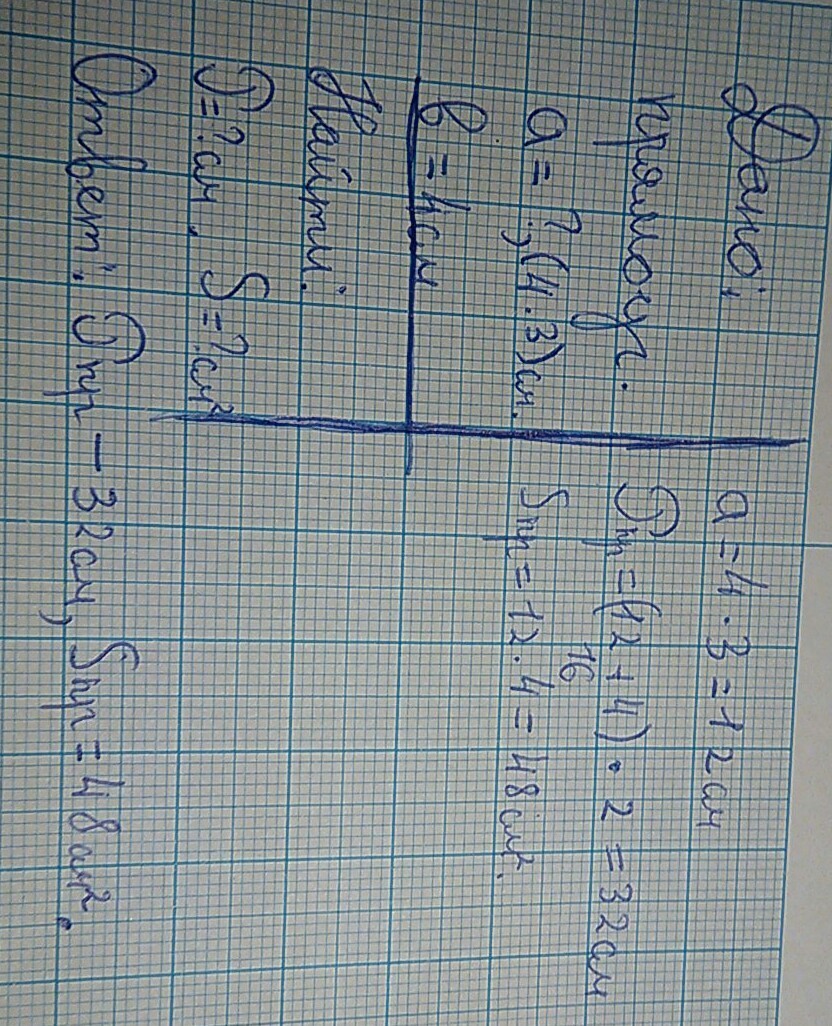 Дано:
прямоуг.
a = ?, (4·3) см.
b = 4 см
Найти:
P = ? см, S = ? см²
a = 4 · 3 = 12 см
Pпр = (12 + 4) · 2 = 32 см
16
Sпр = 12 · 4 = 48 см².
Ответ: Pпр – 32 см, Sпр = 48 см².